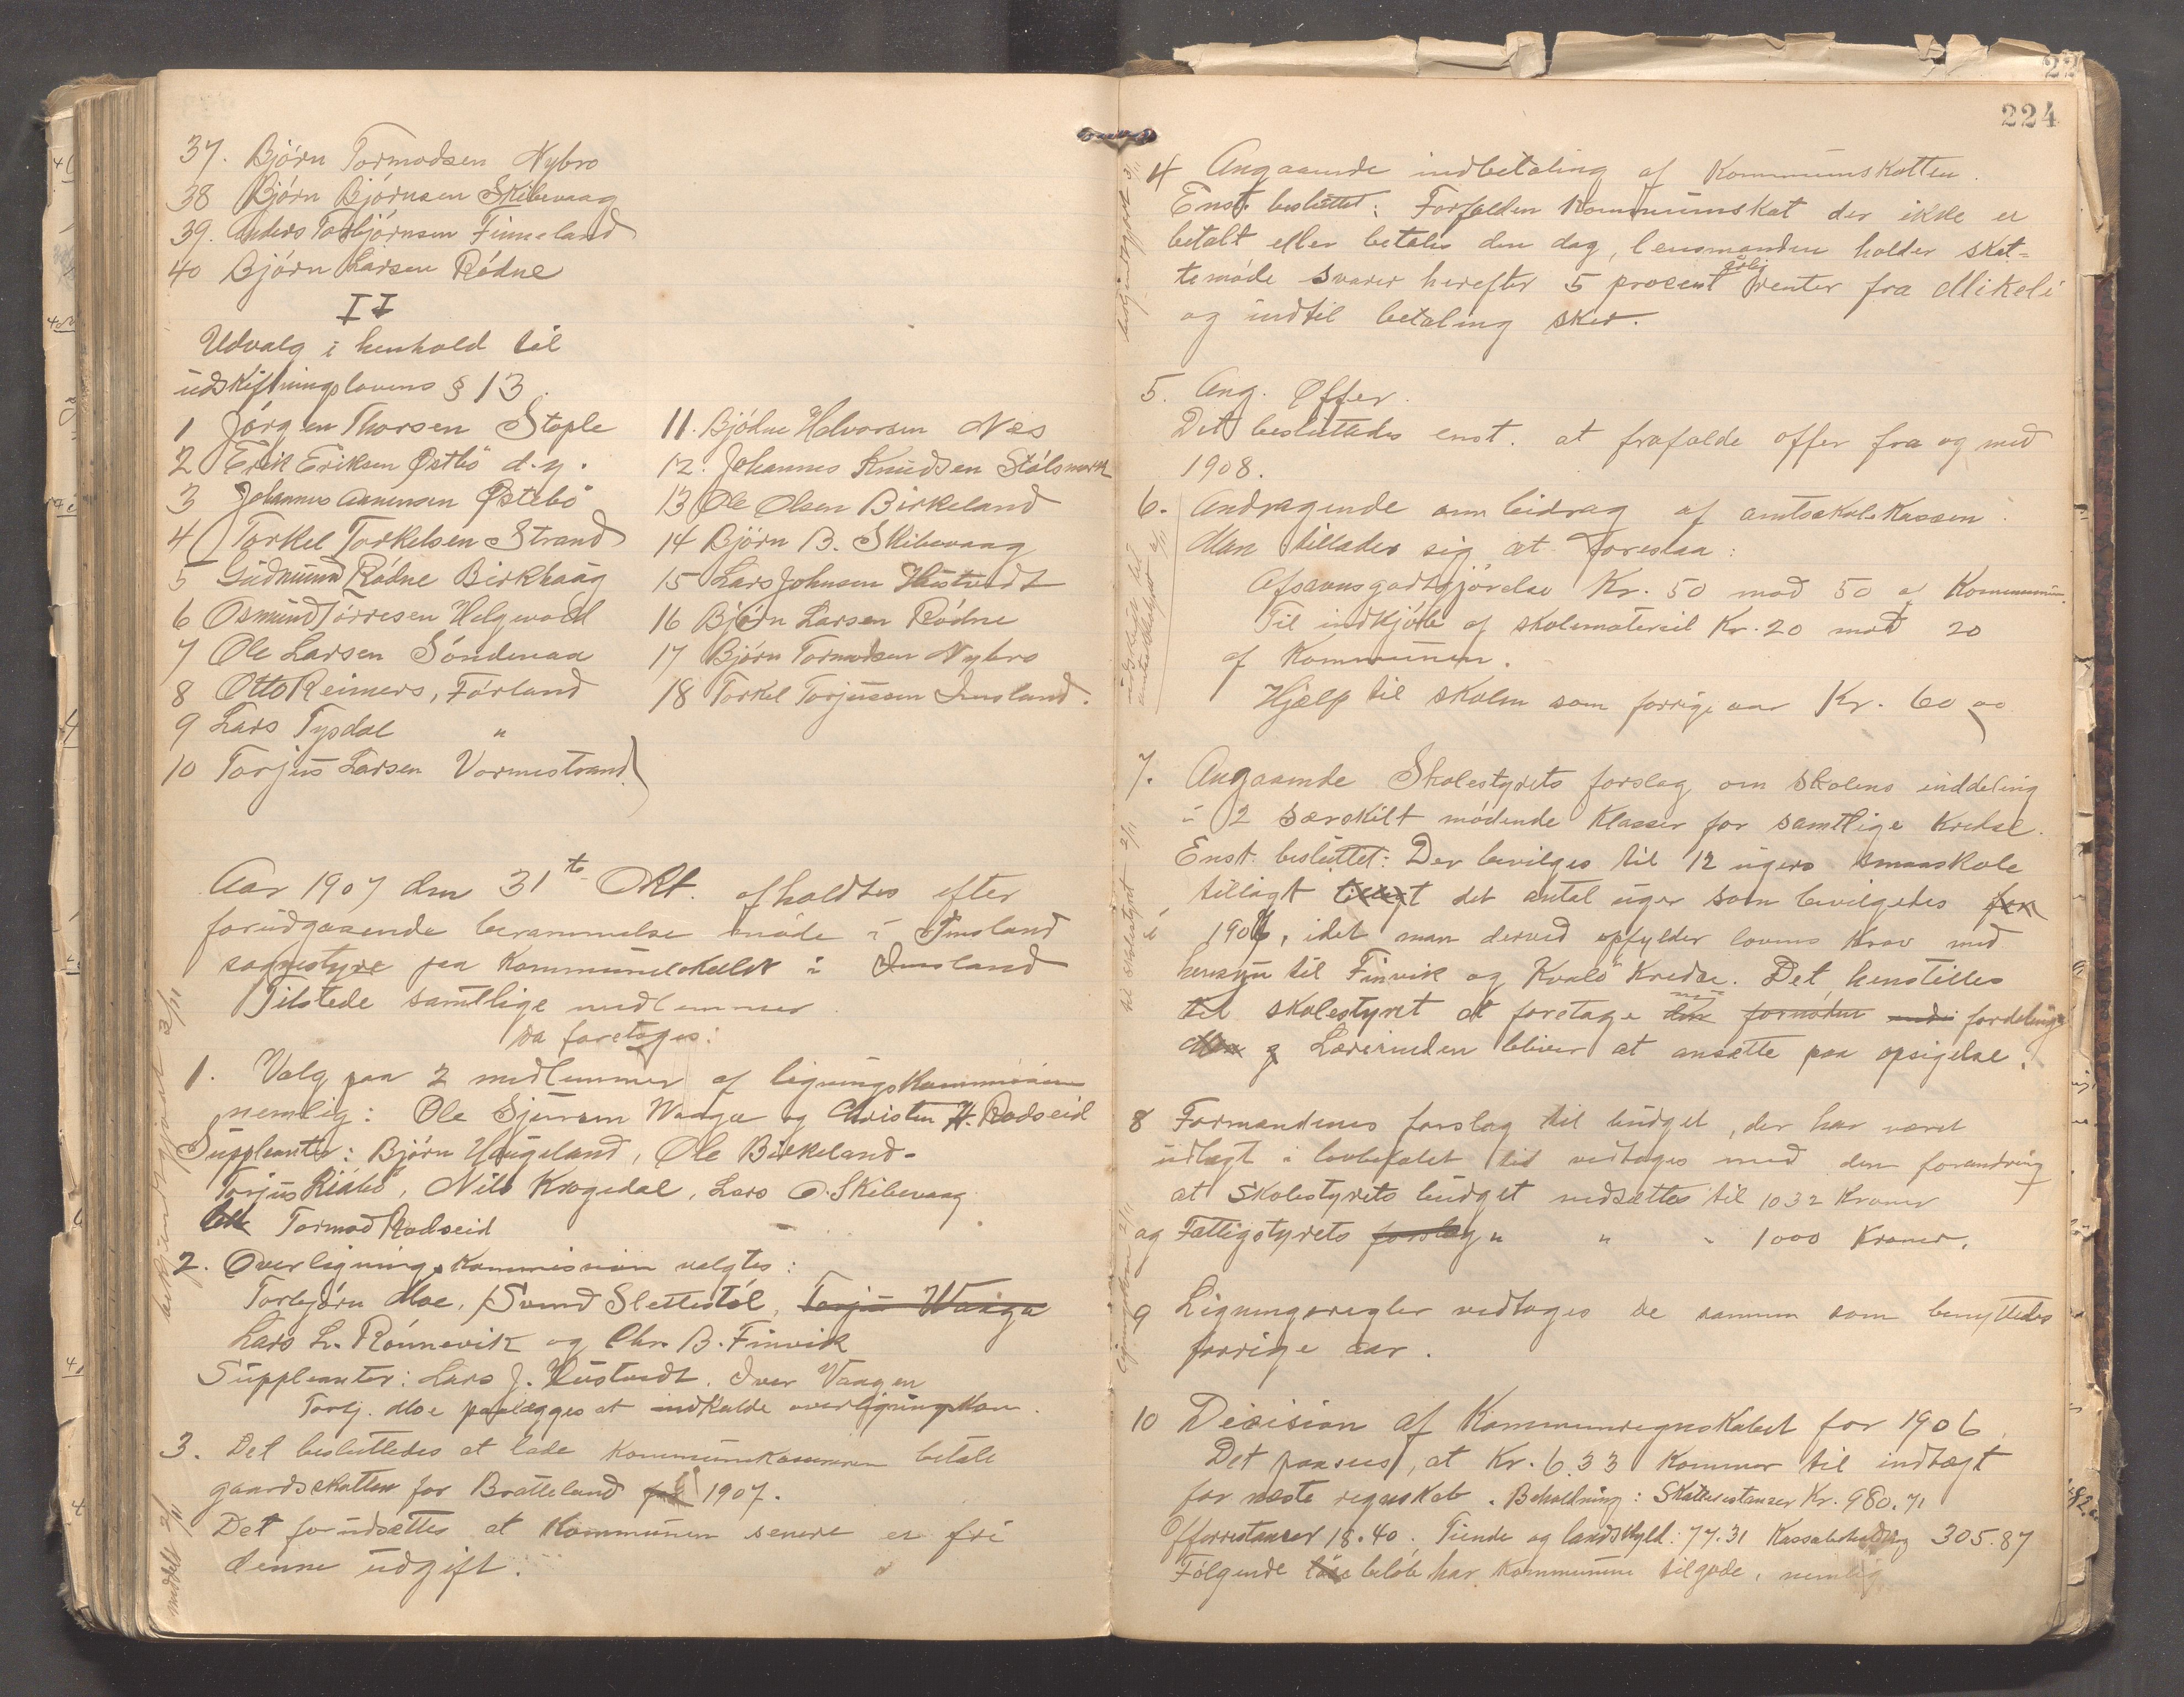 37. Bjórn Tormodsen Nybro
38 Bjórn Bjórnsen Skibevaag
39. Anders Torbjórnsen Finneland
40 Bjórn Larsen Ródne
II
Udvalg i henhold til
udskiftningslovens § 13.
1 Jórgen Thorsen Stople
2 Erik Eriksen Østbö d.y.
3 Johannes Aanensen Østebö
4 Torkel Torkelsen Strand
5 Gudmund Ródne Birkhaug
6 Osmund Torresen Helgevold
7 Ole Larsen Söndenaa
8 Otto Reimers, Fórland
9 Lars Tysdal "
10 Torjus Larsen Vormestrand
11. Bjódne Halvorsen Næs
12. Johannes Knudsen Stólsmark
13 Ole Olsen Birkeland
14 Björn B. Skibevaag
15 Lars Johnsen Hustvedt
16 Bjórn Larsen Ródne
17 Bjórn Tormodsen Nybro
18 Torkel Torjussen Imsland.
Aar 1907 den 31te Okt. afholdtes efter
forudgaaende berammelse móde i Imsland
sognestyre paa Kommunelokalet i Imsland
Tilstede samtlige medlemmer.
Da foretoges:
1. Valg paa 2 medlemmer af ligningskommisionen
nemlig: Ole Sjursen Waage og Christen H. Rodseid
Suppleanter: Bjórn Haugeland, Ole Birkeland-
Torjus Riabö, Nils Krogedal, Lars O. Skibevaag
Tormod Rodseid
2. Overligningskommission valgtes:
Torbjórn Moe, Svend Slettestól, Torjus Waage
Lars L. Rónnevik og Chr. B. Finvik
Suppleanter: Lars J. Hustvedt. Iver Vaagen
Torbj. Moe paalægges at indkalde overligningskom.
3. Det besluttedes at lade Kommunekassereren betale
gaardskatten for Bratteland for 1907.
Det forudsættes at Kommunen senere er fri
denne udgift.
meddelt 2/11
224
4 Angaaende indbetaling af Kommunskatten.
Enst. besluttet: Forfalden Kommunskat der ikke er
betalt eller betales den dag, lensmanden holder skat-
temóde svarer herefter 5 procent årlig renter fra Mikeli
og indtil betaling sker.
5. Ang. Offer.
Det besluttedes enst. at frafalde offer fra og med
1908.
6. Andragende om bidrag af amtsskolekassen.
Man tillader sig at foreslaa:
Afsavnsgodtgjórelse Kr. 50 mod 50 af Kommunen.
Til indkjób af skolemateriel Kr. 20 mod 20
af Kommunen.
Hjælp til skolen som forrige aar Kr. 60.00
7. Angaaende Skolestyrets forslag om skolens inddeling
i 2 særskilt módende klasser for samtlige kredse.
Enst. besluttet: Der bevilges til 12 ugers smaaskole
tillagt det antal uger som bevilgedes for
1906, idet man derved opfylder lovens krav med
hensyn til Finvik og Kvaló Kredse. Det henstilles
til skolestyret at foretage fornóden fordeling
Lærerinden bliver at ansætte paa opsigelse.
8 Formandens forslag til budget, der har været
udlagt i lovbefalet tid vedtoges med den forandring
at Skolestyrets budget nedsættes til 1032 Kroner
og Fattigstyrets forslag " " " 1000 Kroner.
9 Ligningsregler vedtoges de samme som benyttedes
forrige aar.
10 Decision af Kommunregnskabet for 1906.
Det paasees, at Kr. 6.33 kommer til indtægt
for næste regnskab. Beholdning: Skatterestanser Kr. 980.71
Offerrestanser 18.40, Tiende og landskyld: 77.31 Kassabeholdning 305.87
Fólgende beløb har kommunen tilgode, nemlig